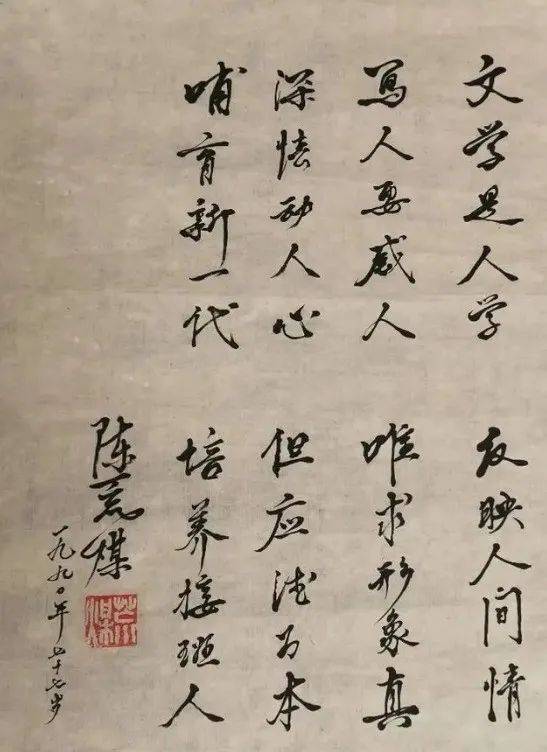 文学是人学
反映人间情
写人要感人
唯求形象真
深情动人心
但应法为本
哺育新一代
培养接班人
陈荒煤
一九九〇年七十七岁
荒煤